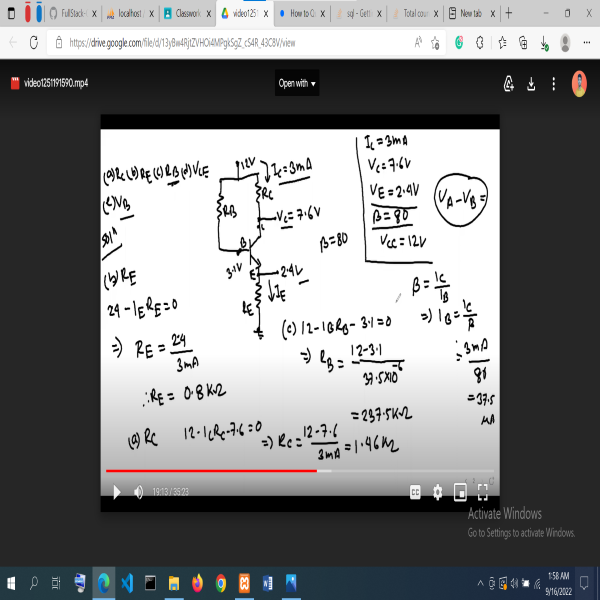 FullStack-
localhost /
Classwork
video1251
How to Co
sql - Gett
Total coun
New tab
https://drive.google.com/file/d/13yBw4RjtZVHOi4MPgkSgZ_cS4R_43C8V/view
video1251191590.mp4
Open with
(a) RC (b) RE (c) RB (d) VCE
(e) VB
Solⁿ
12V
IC = 3mA
RB
RC
VC = 7.6V
C
B
3.1V
E
2.4V
RE
IE
β = 80
IC = 3mA
VC = 7.6V
VE = 2.4V
β = 80
VCC = 12V
VA - VB =
(b) RE
2.4 - IE RE = 0
⇒ RE = 2.4 / 3mA
∴ RE = 0.8 KΩ
(c) 12 - IB RB - 3.1 = 0
⇒ RB = 12 - 3.1 / 37.5 × 10⁻⁶
= 237.5 KΩ
β = IC / IB
⇒ IB = IC / β
= 3mA / 80
= 37.5
μA
(a) RC 12 - IC RC - 7.6 = 0 ⇒ RC = 12 - 7.6 / 3mA = 1.46 KΩ
19:13 / 35:23
CC
Activate Windows
Go to Settings to activate Windows.
1:58 AM
9/16/2022